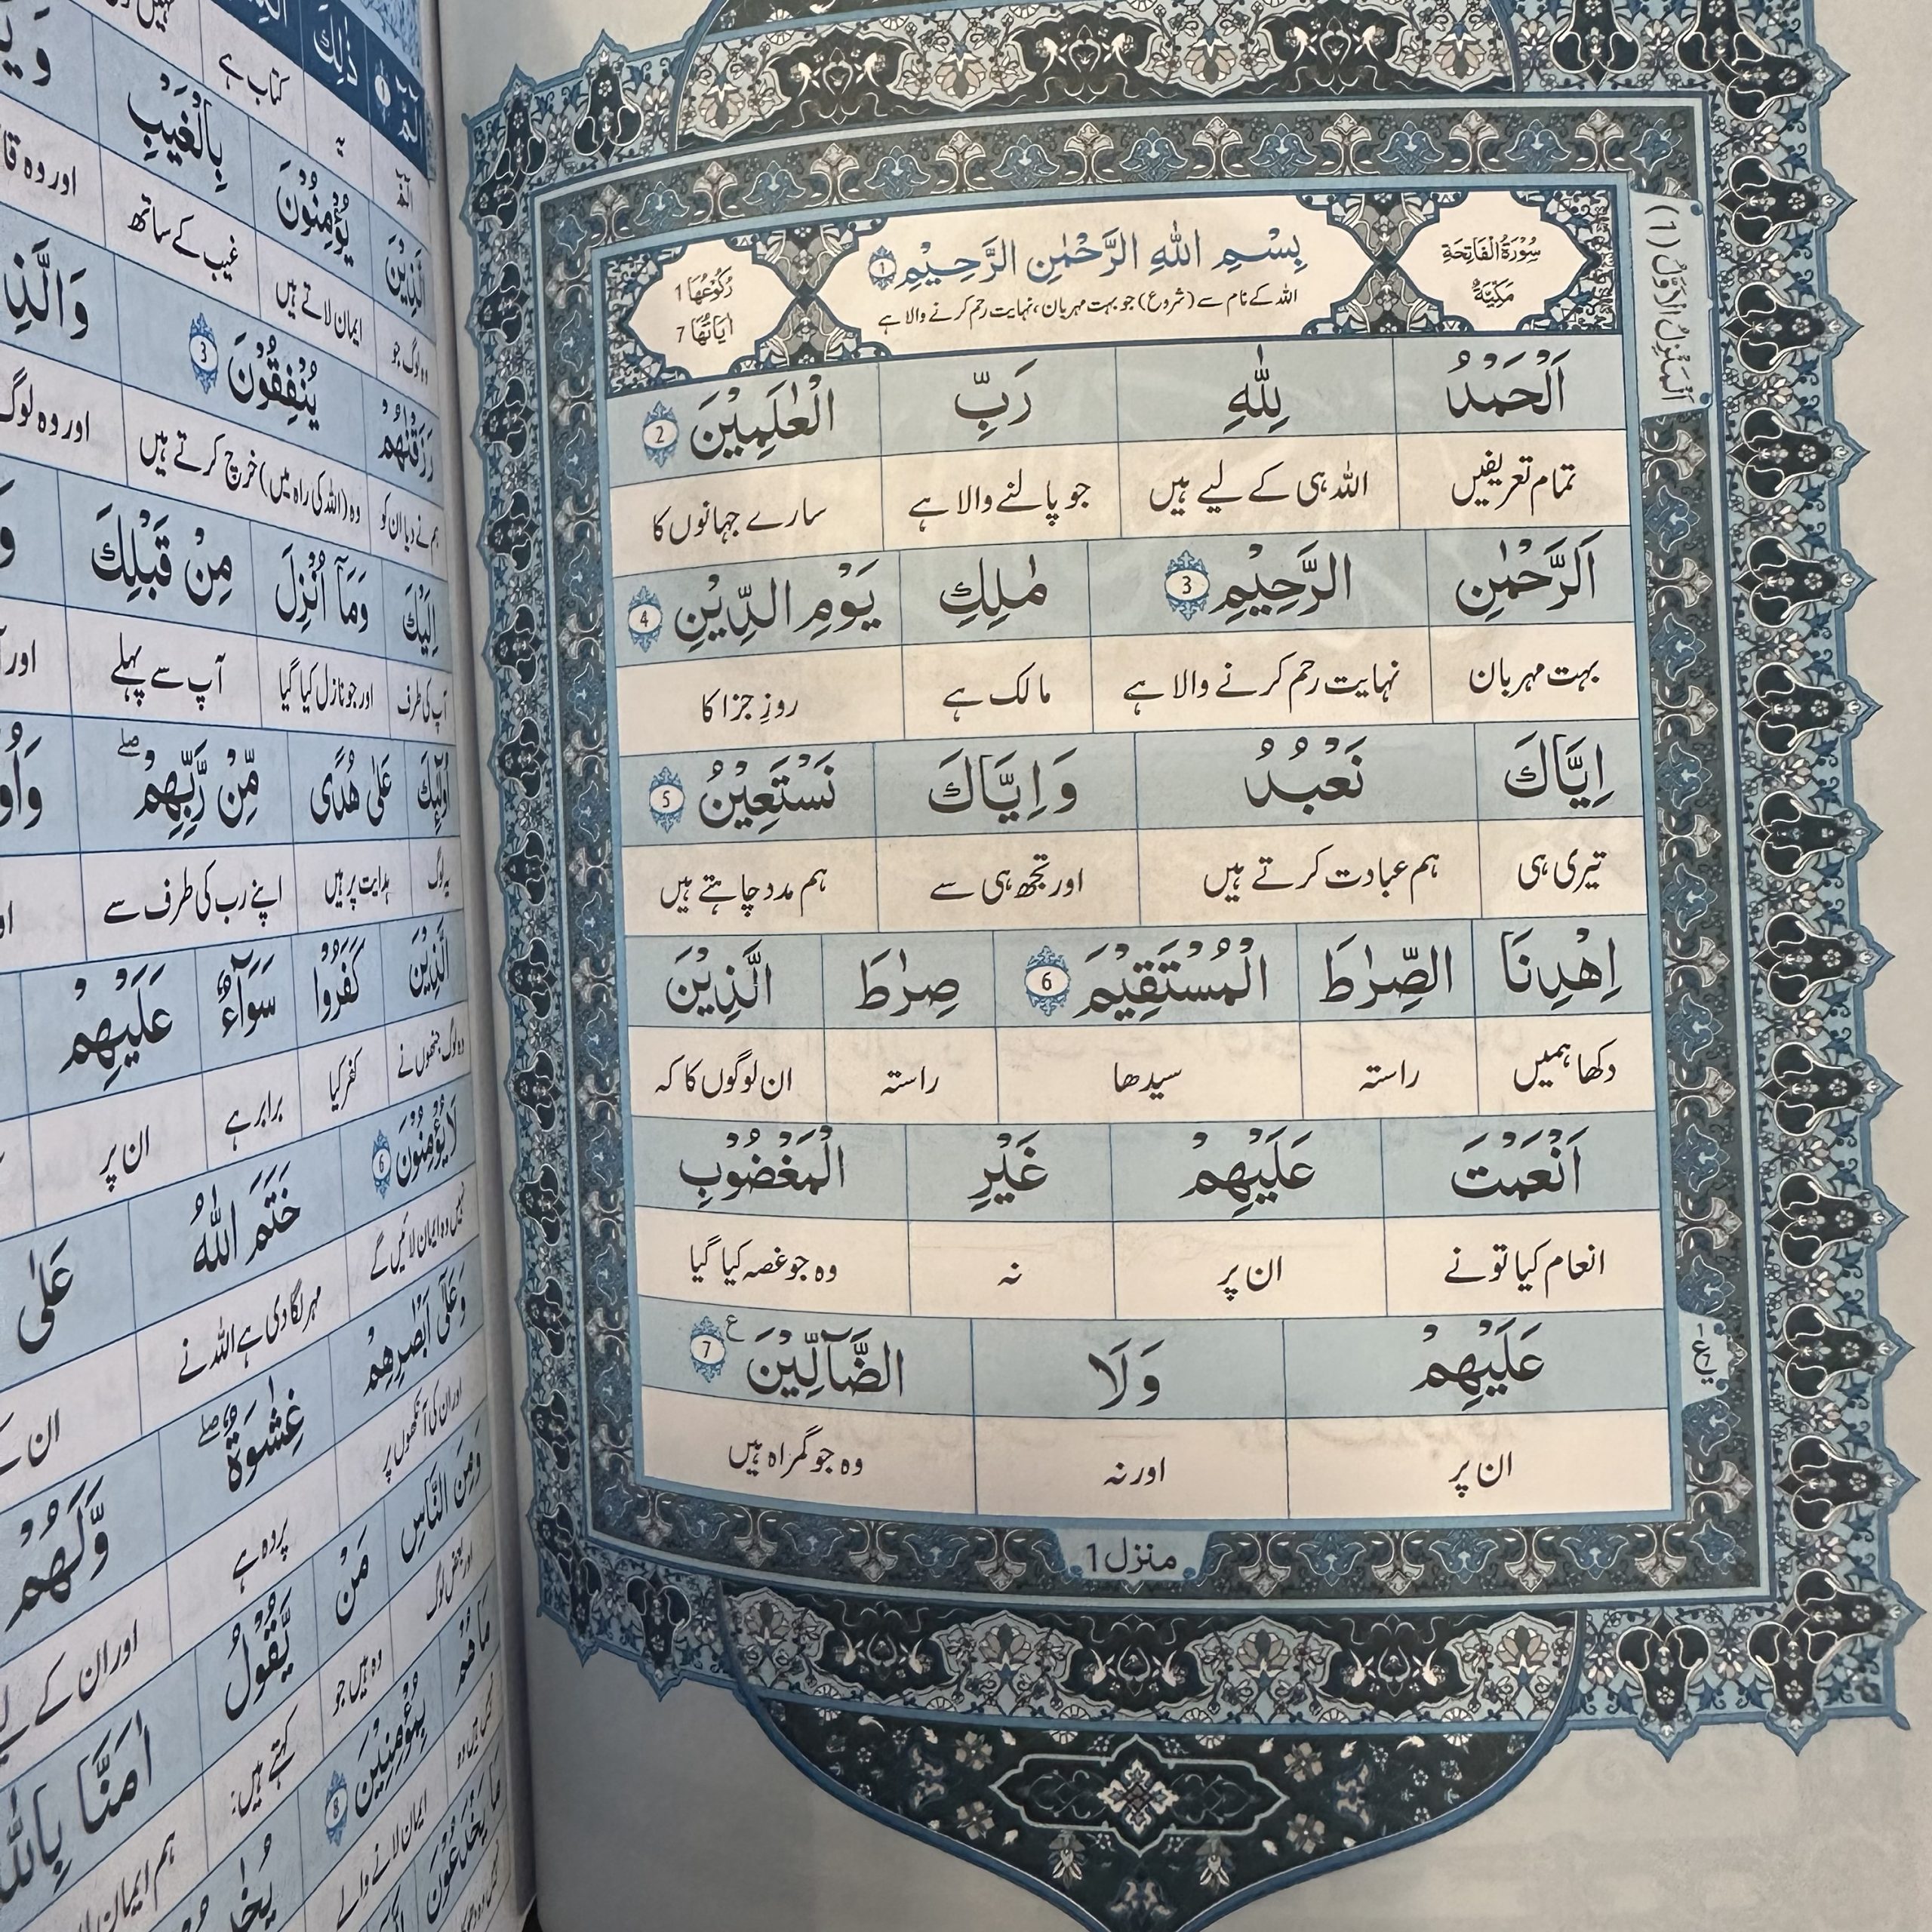 سُوْرَةُ الْفَاتِحَةِ
مَكِّيَّةٌ
بِسْمِ اللّٰهِ الرَّحْمٰنِ الرَّحِيْمِ 1
اللہ کے نام سے (شروع) جو بہت مہربان، نہایت رحم کرنے والا ہے
رُكُوْعُهَا 1
اٰيَاتُهَا 7
اَلْمَنْزِلُ الْاَوَّلُ (1)
اَلْحَمْدُ لِلّٰهِ رَبِّ الْعٰلَمِيْنَ 2
تمام تعریفیں اللہ ہی کے لیے ہیں جو پالنے والا ہے سارے جہانوں کا
اَلرَّحْمٰنِ الرَّحِيْمِ 3 مٰلِكِ يَوْمِ الدِّيْنِ 4
بہت مہربان نہایت رحم کرنے والا ہے مالک ہے روزِ جزا کا
اِيَّاكَ نَعْبُدُ وَاِيَّاكَ نَسْتَعِيْنُ 5
تیری ہی ہم عبادت کرتے ہیں اور تجھ ہی سے ہم مدد چاہتے ہیں
اِهْدِنَا الصِّرٰطَ الْمُسْتَقِيْمَ 6 صِرٰطَ الَّذِيْنَ
دکھا ہمیں راستہ سیدھا راستہ ان لوگوں کا کہ
اَنْعَمْتَ عَلَيْهِمْ غَيْرِ الْمَغْضُوْبِ
انعام کیا تو نے ان پر نہ وہ جو غصہ کیا گیا
عَلَيْهِمْ وَلَا الضَّآلِّيْنَ 7 ع
ان پر اور نہ وہ جو گمراہ ہیں
منزل 1
الٓمّٓ 1 ذٰلِكَ
الٓمّٓ یہ کتاب ہے
الَّذِيْنَ يُؤْمِنُوْنَ بِالْغَيْبِ
وہ لوگ جو ایمان لاتے ہیں غیب کے ساتھ اور وہ
رَزَقْنٰهُمْ يُنْفِقُوْنَ 3 وَالَّذِ
ہم نے دیا ان کو وہ (اللہ کی راہ میں) خرچ کرتے ہیں اور وہ لوگ
اِلَيْكَ وَمَآ اُنْزِلَ مِنْ قَبْلِكَ
آپ کی طرف اور جو نازل کیا گیا آپ سے پہلے اور
اُولٰٓئِكَ عَلٰى هُدًى مِّنْ رَّبِّهِمْ ۖ وَاُو
یہ لوگ ہدایت پر ہیں اپنے رب کی طرف سے
الَّذِيْنَ كَفَرُوْا سَوَآءٌ عَلَيْهِمْ
وہ لوگ جنھوں نے کفر کیا برابر ہے ان پر
لَا يُؤْمِنُوْنَ 6 خَتَمَ اللّٰهُ عَلٰى
نہیں وہ ایمان لائیں گے مہر لگا دی ہے اللہ نے
وَعَلٰٓى اَبْصٰرِهِمْ غِشٰوَةٌ ۖ وَّلَهُمْ
اور ان کی آنکھوں پر پردہ ہے اور ان کے
وَمِنَ النَّاسِ مَنْ يَّقُوْلُ اٰمَنَّا بِاللّٰهِ
اور بعض لوگ وہ ہیں جو کہتے ہیں: ہم ایمان
مَا هُمْ بِمُؤْمِنِيْنَ 8
ایمان لانے والے